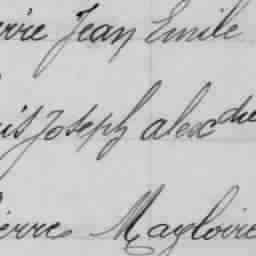 erre Jean Emile
uis Joseph alexdre
ierre Magloire